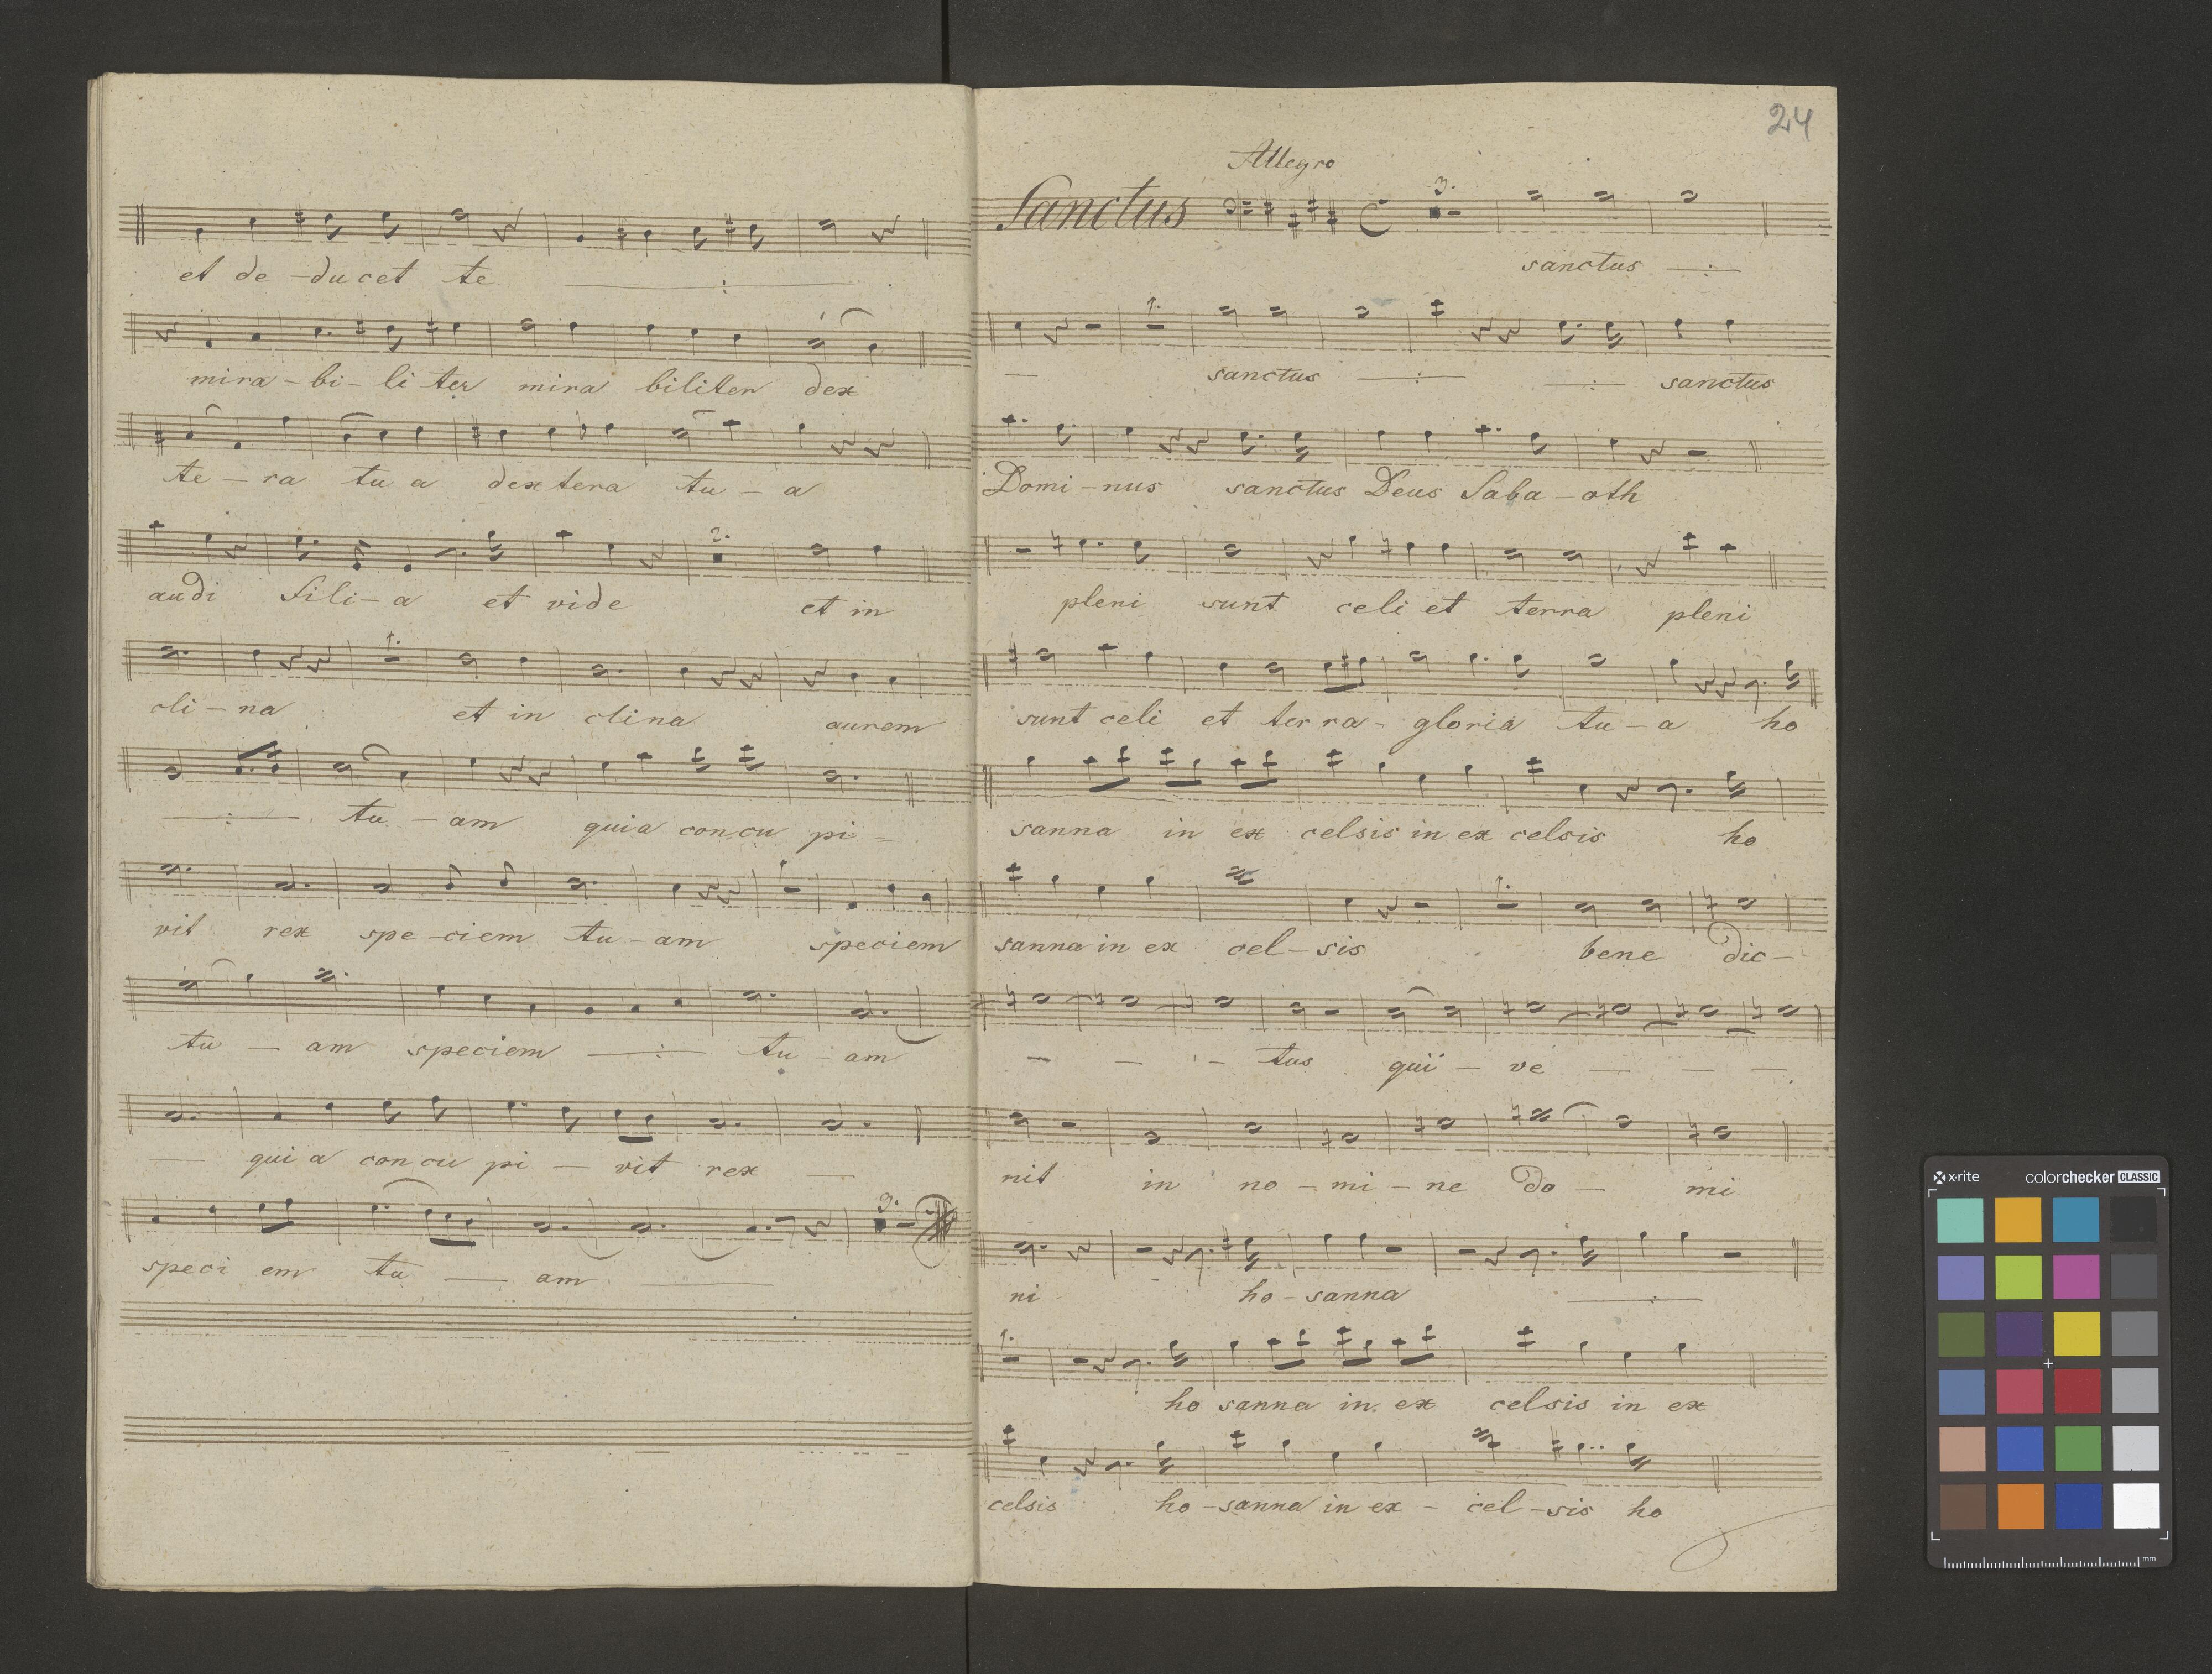 et de - ducet te
mira - bi - li ter mira biliter dex
te - ra tu a dextera tu - a
2.
audi fili - a et vide et in
1.
cli - na et in clina aurem
tu - am quia concu pi =
vit rex spe - ciem tu - am speciem
tu - am speciem tu - am
quia concu pi - vit rex
3.
speci em tu - am
24
Allegro
Sanctus 3.
sanctus
1.
sanctus sanctus
Domi - nus sanctus Deus Saba - oth
pleni sunt celi et terra pleni
sunt celi et ter ra - gloria tu - a ho
sanna in ex celsis in ex celsis ho
1.
sanna in ex cel - sis bene dic -
- - - tus qui - ve
nit in no - mi - ne do - mi
ni ho - sanna
1.
ho sanna in ex celsis in ex
celsis ho - sanna in ex - cel - sis ho
x-rite colorchecker CLASSIC
mm